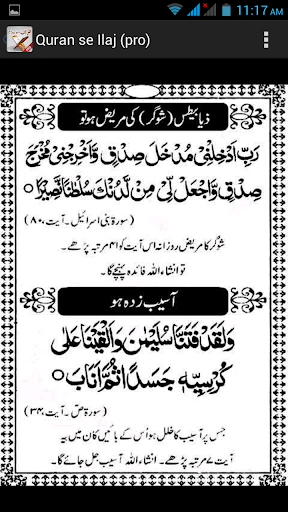 11:17 AM
Quran se Ilaj (pro)
ذیابیطس (شوگر) کی مریض ہو تو
رَبِّ اَدْخِلْنِیْ مُدْخَلَ صِدْقٍ وَّاَخْرِجْنِیْ مُخْرَجَ
صِدْقٍ وَّاجْعَلْ لِّیْ مِنْ لَّدُنْكَ سُلْطٰنًا نَّصِیْرًا ○
(سورۃ بنی اسرائیل ۔ آیت، ۸۰)
شوگر کا مریض روزانہ اس آیت کو ۴۱ مرتبہ پڑھے۔
تو انشاء اللہ فائدہ پہنچے گا۔
آسیب زدہ ہو
وَلَقَدْ فَتَنَّا سُلَیْمٰنَ وَاَلْقَیْنَا عَلٰی
كُرْسِیِّهٖ جَسَدًا ثُمَّ اَنَابَ ○
(سورۃ صٓ ۔ آیت، ۳۴)
جس پر آسیب کا خلل ہو اُس کے بائیں کان میں یہ
آیت ۷ مرتبہ پڑھے۔ انشاء اللہ آسیب جل جائے گا۔